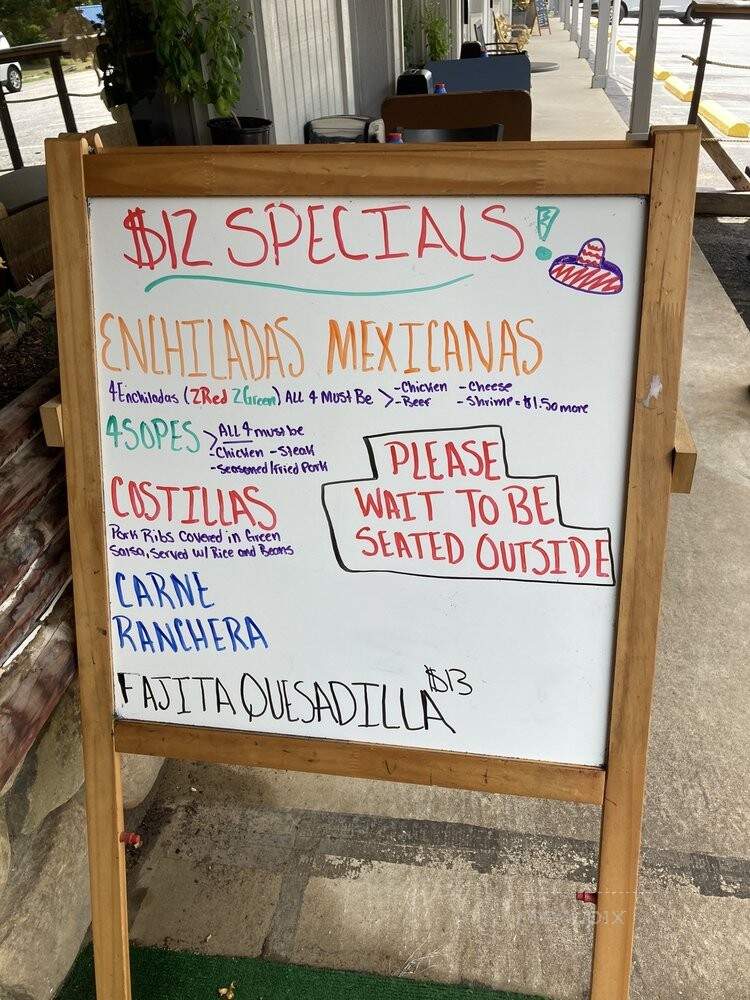 $12 SPECIALS!
ENCHILADAS MEXICANAS
4 Enchiladas (2Red 2Green) All 4 Must Be > -Chicken -Cheese
-Beef -Shrimp = $1.50 more
4 SOPES > ALL 4 must be
-Chicken -Steak
-Seasoned/Fried Pork
COSTILLAS
Pork Ribs Covered in Green
Salsa, Served w/ Rice and Beans
PLEASE
WAIT TO BE
SEATED OUTSIDE
CARNE
RANCHERA
FAJITA QUESADILLA $13